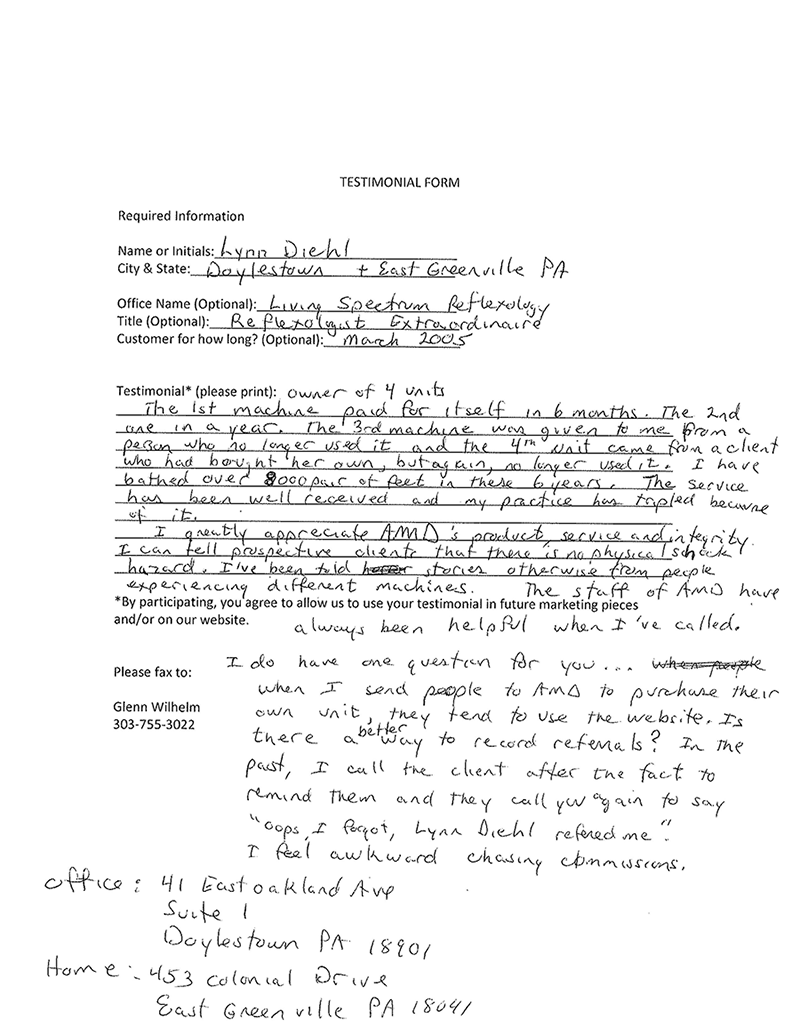 TESTIMONIAL FORM
Required Information
Name or Initials: Lynn Diehl
City & State: Doylestown + East Greenville PA
Office Name (Optional): Living Spectrum Reflexology
Title (Optional): Reflexologist Extraordinaire
Customer for how long? (Optional): March 2005
Testimonial* (please print): owner of 4 units
The 1st machine paid for itself in 6 months. The 2nd
one in a year. The 3rd machine was given to me from a
person who no longer used it and the 4th unit came from a client
who had bought her own, but again, no longer used it. I have
bathed over 8000 pair of feet in these 6 years. The service
has been well received and my practice has tripled because
of it.
I greatly appreciate AMD's product, service and integrity.
I can tell prospective clients that there is no physical shock
hazard. I've been told stories otherwise from people
experiencing different machines. The staff of AMD have
*By participating, you agree to allow us to use your testimonial in future marketing pieces
and/or on our website.
always been helpful when I've called.
Please fax to:
Glenn Wilhelm
303-755-3022
I do have one question for you... when people
when I send people to AMD to purchase their
own unit, they tend to use the website. Is
there a better way to record referrals? In the
past, I call the client after the fact to
remind them and they call you again to say
"oops, I forgot, Lynn Diehl refered me".
I feel awkward chasing commissions.
Office: 41 East Oakland Ave
Suite 1
Doylestown PA 18901
Home: 453 Colonial Drive
East Greenville PA 18041